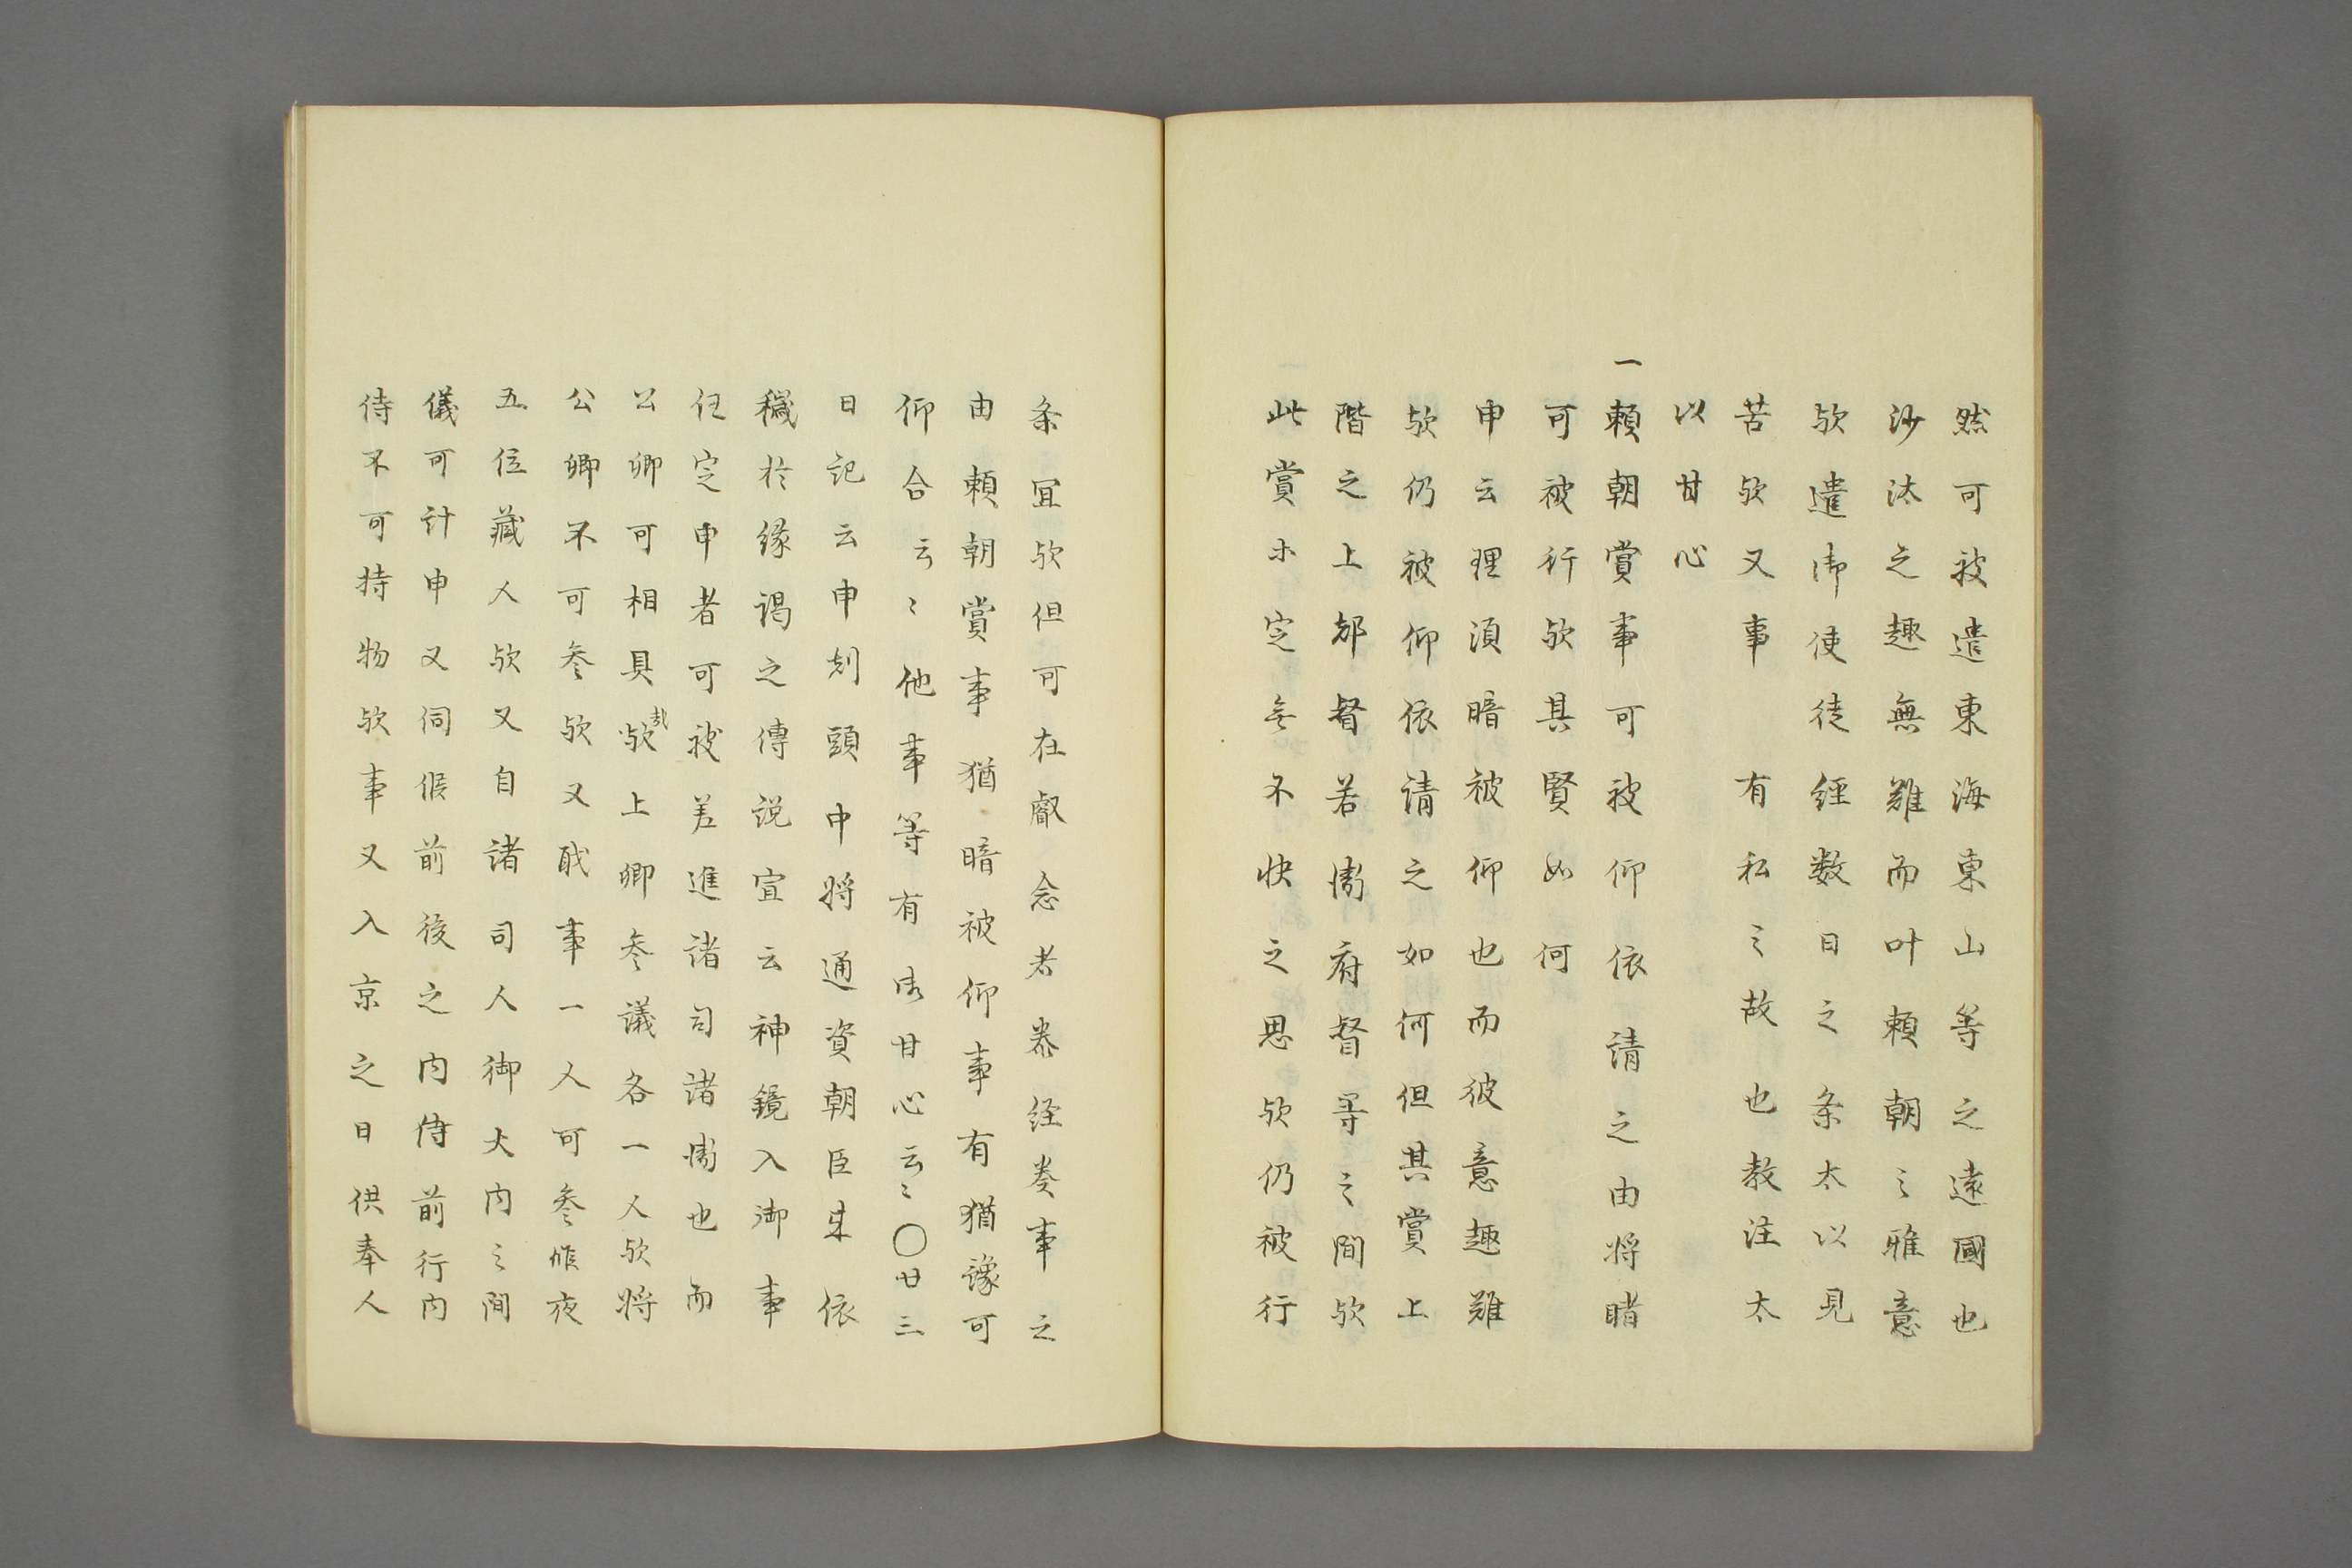 然可被遣東海東山等之遠國也
沙汰之趣無難而叶頼朝之雅意
欤遣御使徒經数日之条太以見
苦欤又事有私之故也教注太
以甘心
一頼朝賞事可被仰依請之由将暗
可被行欤其賢如何
申云理須暗被仰也而彼意趣難
欤仍被仰依請之如何但其賞上
階之上都督若衛府督等之間欤
此賞未定無不快之思欤仍被行
条冝欤但可在叡念者奏経奏事之
由頼朝賞事猶暗被仰事有猶豫可
仰合云〻他事等有御甘心云〻〇廿三
日記云申刻頭中将通資朝臣来依
穢於縁謁之傳説宣云神鏡入御事
任定申者可被差進諸司諸衛也而
公卿可相具欤乱上卿参議各一人欤将
公卿不可参欤又職事一人可参帷夜
五位蔵人欤又自諸司人御大内之間
儀可計申又伺候前後之内侍前行内
侍不可持物欤事又入京之日供奉人